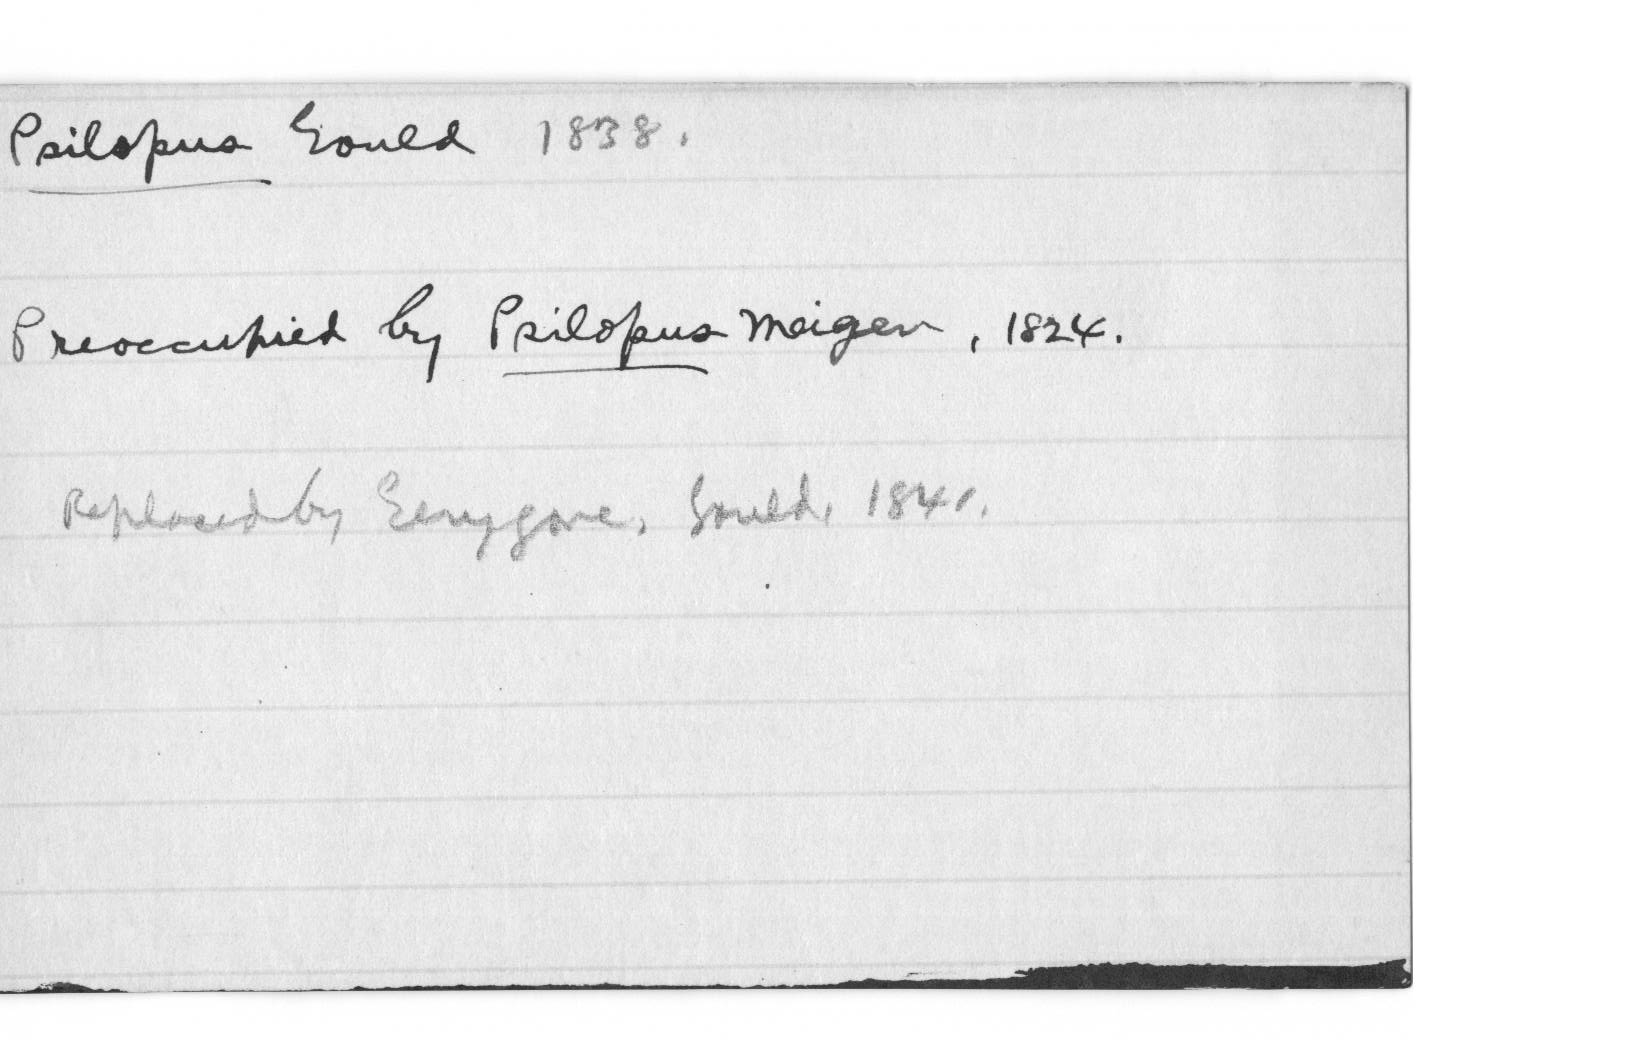 Psilopus Gould 1838.
Preoccupied by Psilopus Meigen, 1824.
Replaced by Gerygone, Gould, 1841.